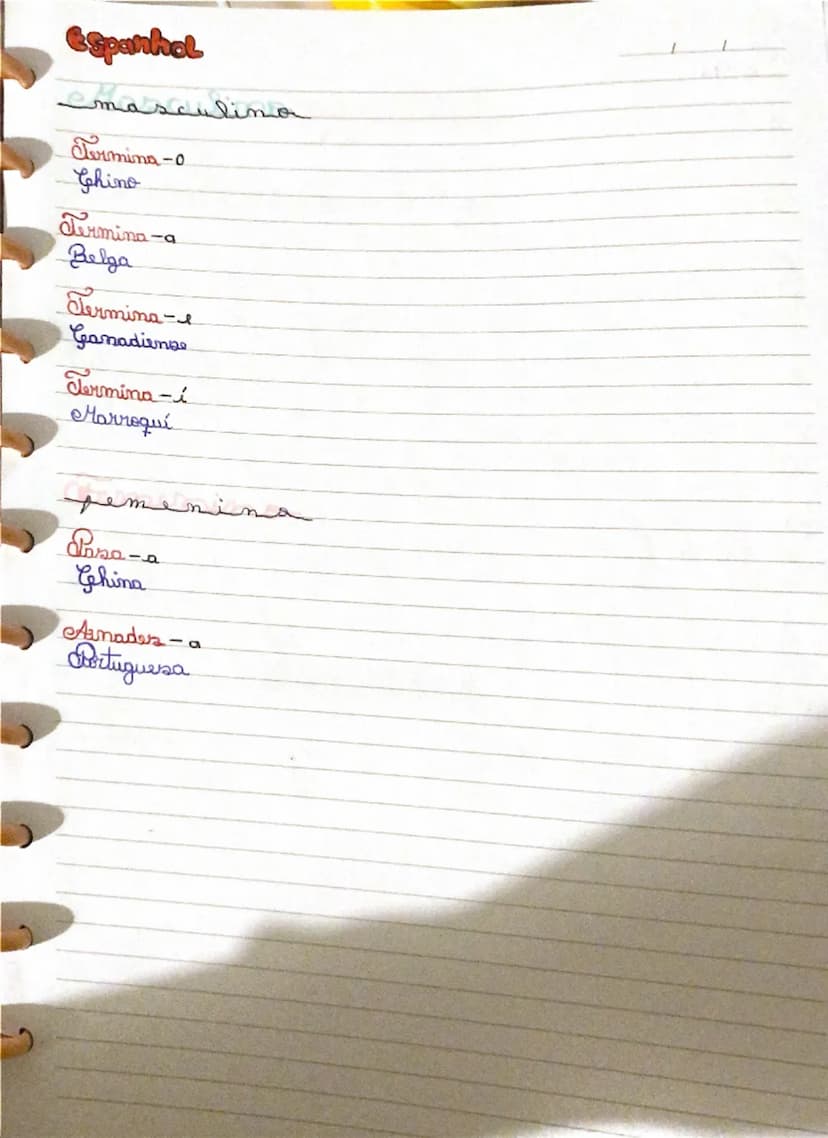 Espanhol
/ /
masculino
Termina-o
Chino
Termina-a
Belga
Termina-e
Canadiense
Termina-í
Marroquí
femenina
Pasa-a
China
Portuguesa